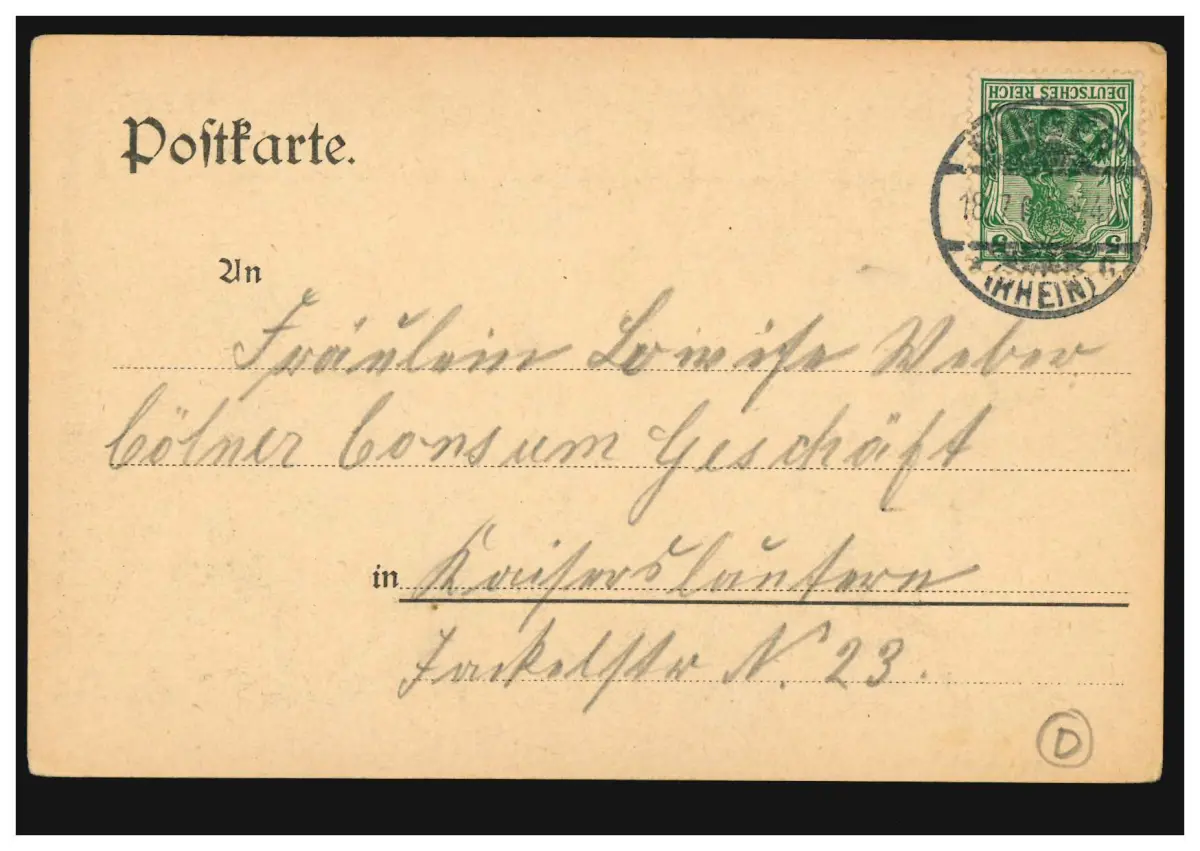 Postkarte.
DEUTSCHES REICH
5 5
BINGEN
18
(RHEIN)
An
Fräulein Lowise Weber
Cölner Consum Geschäft
in Kaiserslautern
Fackelstr N. 23.
D